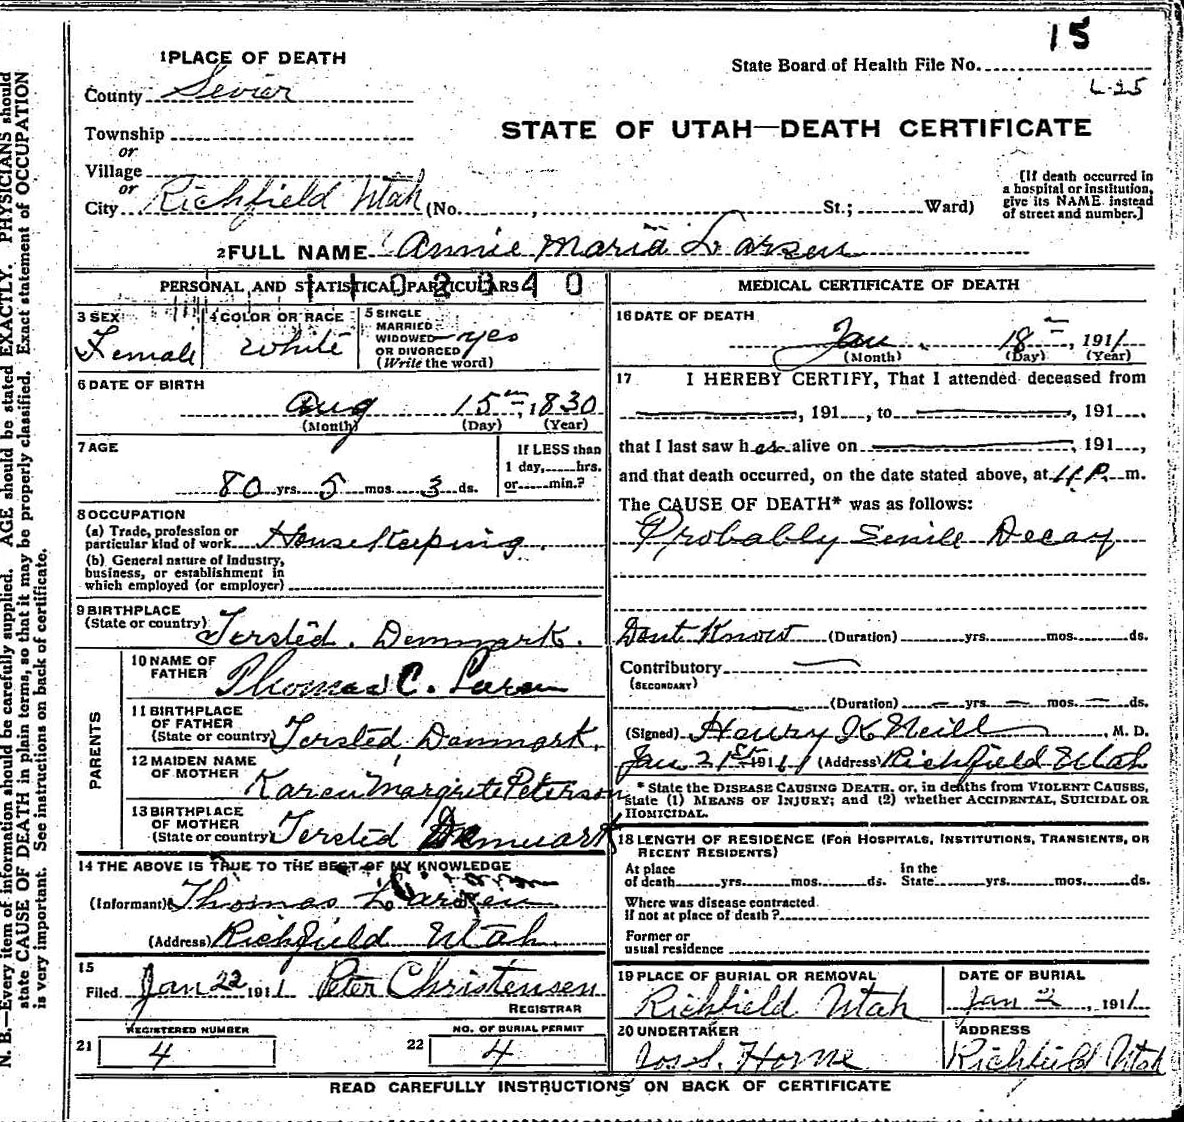 15
1 PLACE OF DEATH
State Board of Health File No.
L-25
County Sevier
STATE OF UTAH—DEATH CERTIFICATE
Township
or
Village
or
City Richfield Utah (No. , St.; Ward)
[If death occurred in
a hospital or institution,
give its NAME instead
of street and number.]
2 FULL NAME Annie Maria Larsen
PERSONAL AND STATISTICAL PARTICULARS
3 SEX
Female
4 COLOR OR RACE
White
5 SINGLE
MARRIED
WIDOWED
OR DIVORCED
(Write the word)
yes
6 DATE OF BIRTH
Aug 15 1830
(Month) (Day) (Year)
7 AGE
80 yrs. 5 mos. 3 ds.
If LESS than
1 day, hrs.
or min.?
8 OCCUPATION
(a) Trade, profession or
particular kind of work Housekeeping
(b) General nature of Industry,
business, or establishment in
which employed (or employer)
9 BIRTHPLACE
(State or country) Tersted. Denmark.
PARENTS
10 NAME OF
FATHER Thomas C.
11 BIRTHPLACE
OF FATHER
(State or country) Tersted Danmark.
12 MAIDEN NAME
OF MOTHER
Karen Margrite Peterson
13 BIRTHPLACE
OF MOTHER
(State or country) Tersted Denmark
14 THE ABOVE IS TRUE TO THE BEST OF MY KNOWLEDGE
(Informant) Thomas Larsen
(Address) Richfield Utah
15
Filed Jan 22 1911 Peter Christensen
REGISTRAR
REGISTERED NUMBER
21 4
NO. OF BURIAL PERMIT
22 4
MEDICAL CERTIFICATE OF DEATH
16 DATE OF DEATH
Jan 18, 1911
(Month) (Day) (Year)
17 I HEREBY CERTIFY, That I attended deceased from
, 191 , to , 191 ,
that I last saw her alive on , 191 ,
and that death occurred, on the date stated above, at 11 P. m.
The CAUSE OF DEATH* was as follows:
Probably Senile Decay
Dont Know (Duration) yrs. mos. ds.
Contributory
(SECONDARY)
(Duration) yrs. mos. ds.
(Signed) Henry K Neill, M. D.
Jan 21st 1911 (Address) Richfield Utah
* State the DISEASE CAUSING DEATH, or, in deaths from VIOLENT CAUSES,
state (1) MEANS OF INJURY; and (2) whether ACCIDENTAL, SUICIDAL OR
HOMICIDAL.
18 LENGTH OF RESIDENCE (FOR HOSPITALS, INSTITUTIONS, TRANSIENTS, OR
RECENT RESIDENTS)
At place
of death yrs. mos. ds.
In the
State yrs. mos. ds.
Where was disease contracted
if not at place of death?
Former or
usual residence
19 PLACE OF BURIAL OR REMOVAL
Richfield Utah
DATE OF BURIAL
Jan 2, 1911
20 UNDERTAKER
Jos S. Horne
ADDRESS
Richfield Utah
READ CAREFULLY INSTRUCTIONS ON BACK OF CERTIFICATE
N. B.—Every item of information should be carefully supplied. AGE should be stated EXACTLY. PHYSICIANS should
state CAUSE OF DEATH in plain terms, so that it may be properly classified. Exact statement of OCCUPATION
is very important. See instructions on back of certificate.